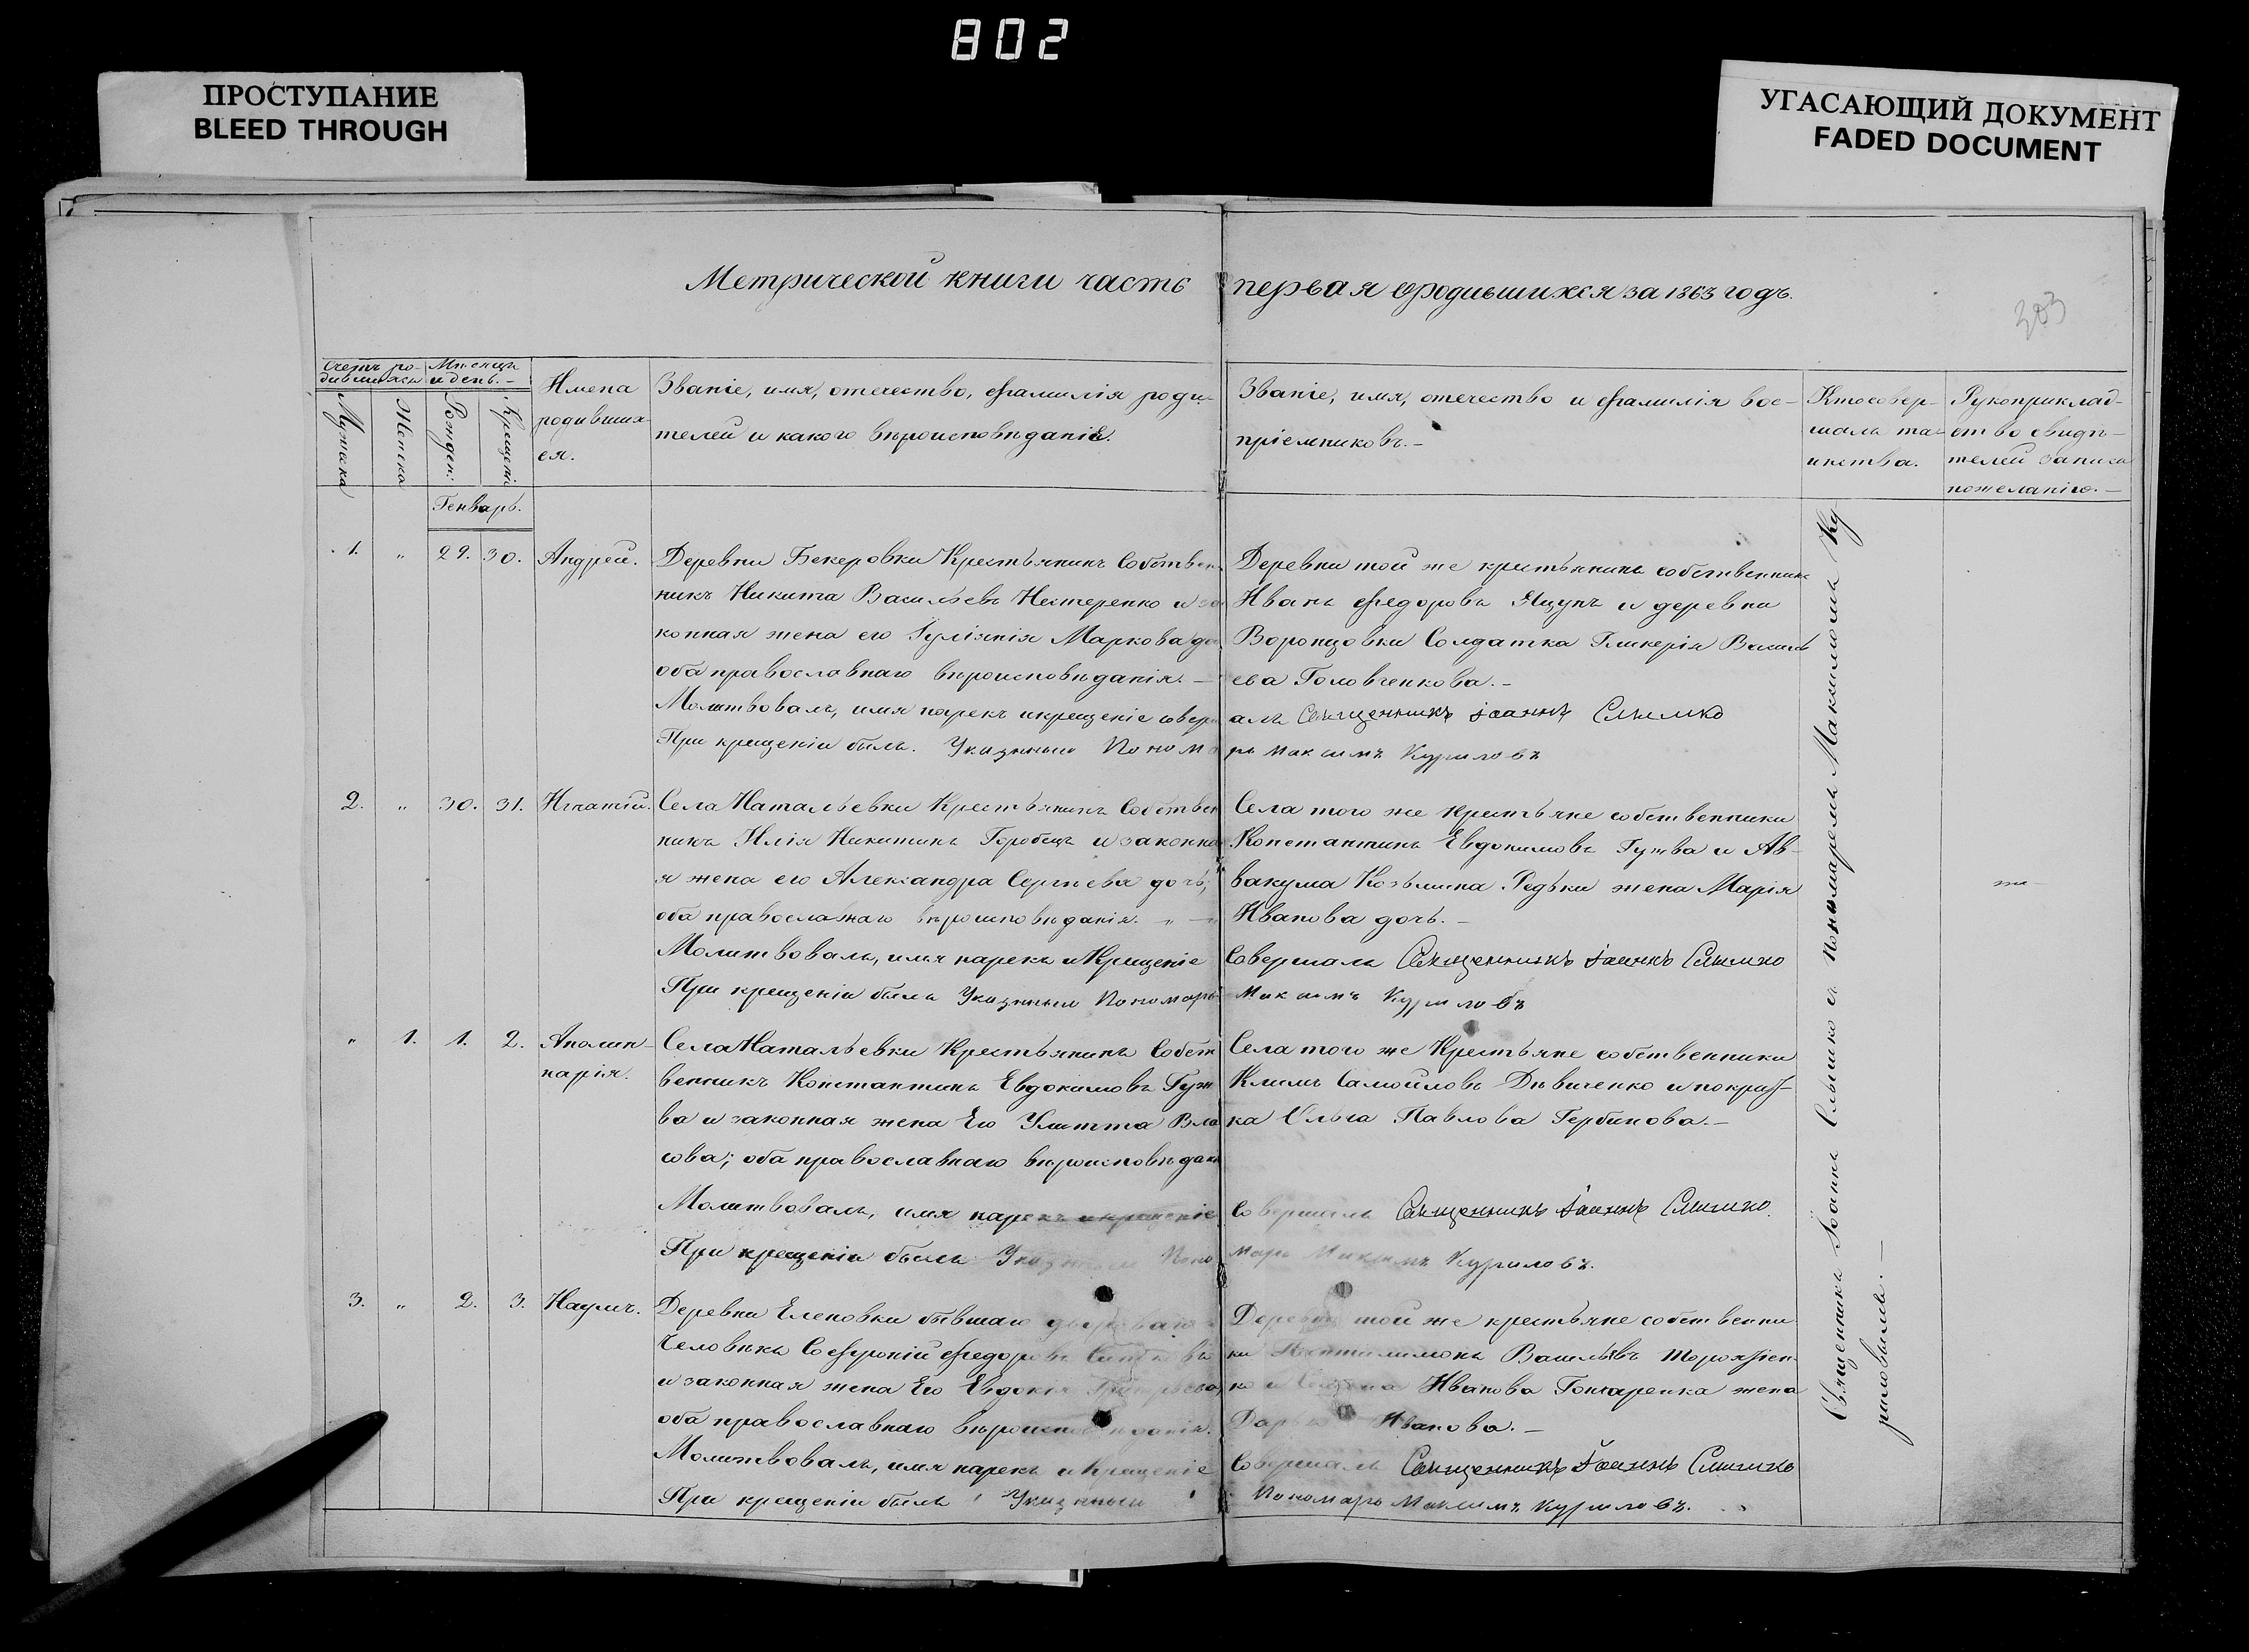 802
ПРОСТУПАНИЕ
BLEED THROUGH
УГАСАЮЩИЙ ДОКУМЕНТ
FADED DOCUMENT
Метрической книги часть первая о родившихся за 1863 годъ.
303
Счетъ ро-
дившихся
Мѣсяцъ
и день.
Мужска
Женска
Рожден:
Крещенія
Имена
родивших-
ся.
Званіе, имя, отечество, фамилія роди-
телей и какого вѣроисповѣданія.
Званіе, имя, отечество и фамилія вос-
пріемниковъ.
Кто совер-
шалъ та-
инства.
Рукоприклад-
ство свидѣ-
телей записи
по желанію.
Генварь.
1. " 29. 30. Андрей.
Деревни Бекеровки Крестьянинъ Собствен
никъ Никита Васильевъ Нестеренко и за
конная жена его Іуліянія Маркова до
оба православнаго вѣроисповѣданія.
Молитвовалъ, имя нарекъ и крещеніе совер
При крещеніи былъ. Указнный Понома
Деревни той же крестьянинъ собственникъ
Иванъ Федоровъ Яцунъ и деревни
Воронцовки Солдатка Гликерія Василь
ева Головченкова.
алъ Священникъ Іоаннъ Слышко
рь Максимъ Куриловъ
2. " 30. 31. Игнатій.
Села Натальевки Крестьянинъ Собствен
никъ Илія Никитинъ Горобецъ и законна
я жена его Александра Сергѣева дочь;
оба православнаго вѣроисповѣданія.
Молитвовалъ, имя нарекъ и Крещеніе
При крещеніи былъ Указнный Пономарь
Села того же крестьяне собственники
Константинъ Евдокимовъ Гужва и Ав-
вакума Козьмина Редьки жена Марія
Иванова дочь.
Совершалъ Священникъ Іоаннъ Слышко
Максимъ Куриловъ
" 1. 1. 2. Аполин-
нарія.
Села Натальевки Крестьянинъ Собст
венникъ Константинъ Евдокимовъ Гуж
ва и законная жена Его Улитта Вла
сова; оба православнаго вѣроисповѣдан
Молитвовалъ, имя нарекъ и крещеніе
При крещеніи былъ Указнный Поно
Села того же Крестьяне собственники
Климъ Самойловъ Дѣвиченко и покрыт-
ка Ольга Павлова Гербинова.
Совершалъ Священникъ Іоаннъ Слышко
марь Максимъ Куриловъ.
3. " 2. 3. Наумъ.
Деревни Еленовки бывшаго двороваго
Человѣка Софроній Федоровъ
и законная жена Его Евдокія
оба православнаго вѣроисповѣданія.
Молитвовалъ, имя нарекъ и Крещеніе
При крещеніи былъ Указнный
Деревни той же крестьяне собственни
ки Пантилимонъ Васильевъ
но и Иванова Гончаренка жена
Дарья Иванова.
Совершалъ Священникъ Іоаннъ Слышко
Пономарь Максимъ Куриловъ.
Священникъ Іоаннъ Слышко съ Пономаремъ Максимомъ Ку-
риловымъ.